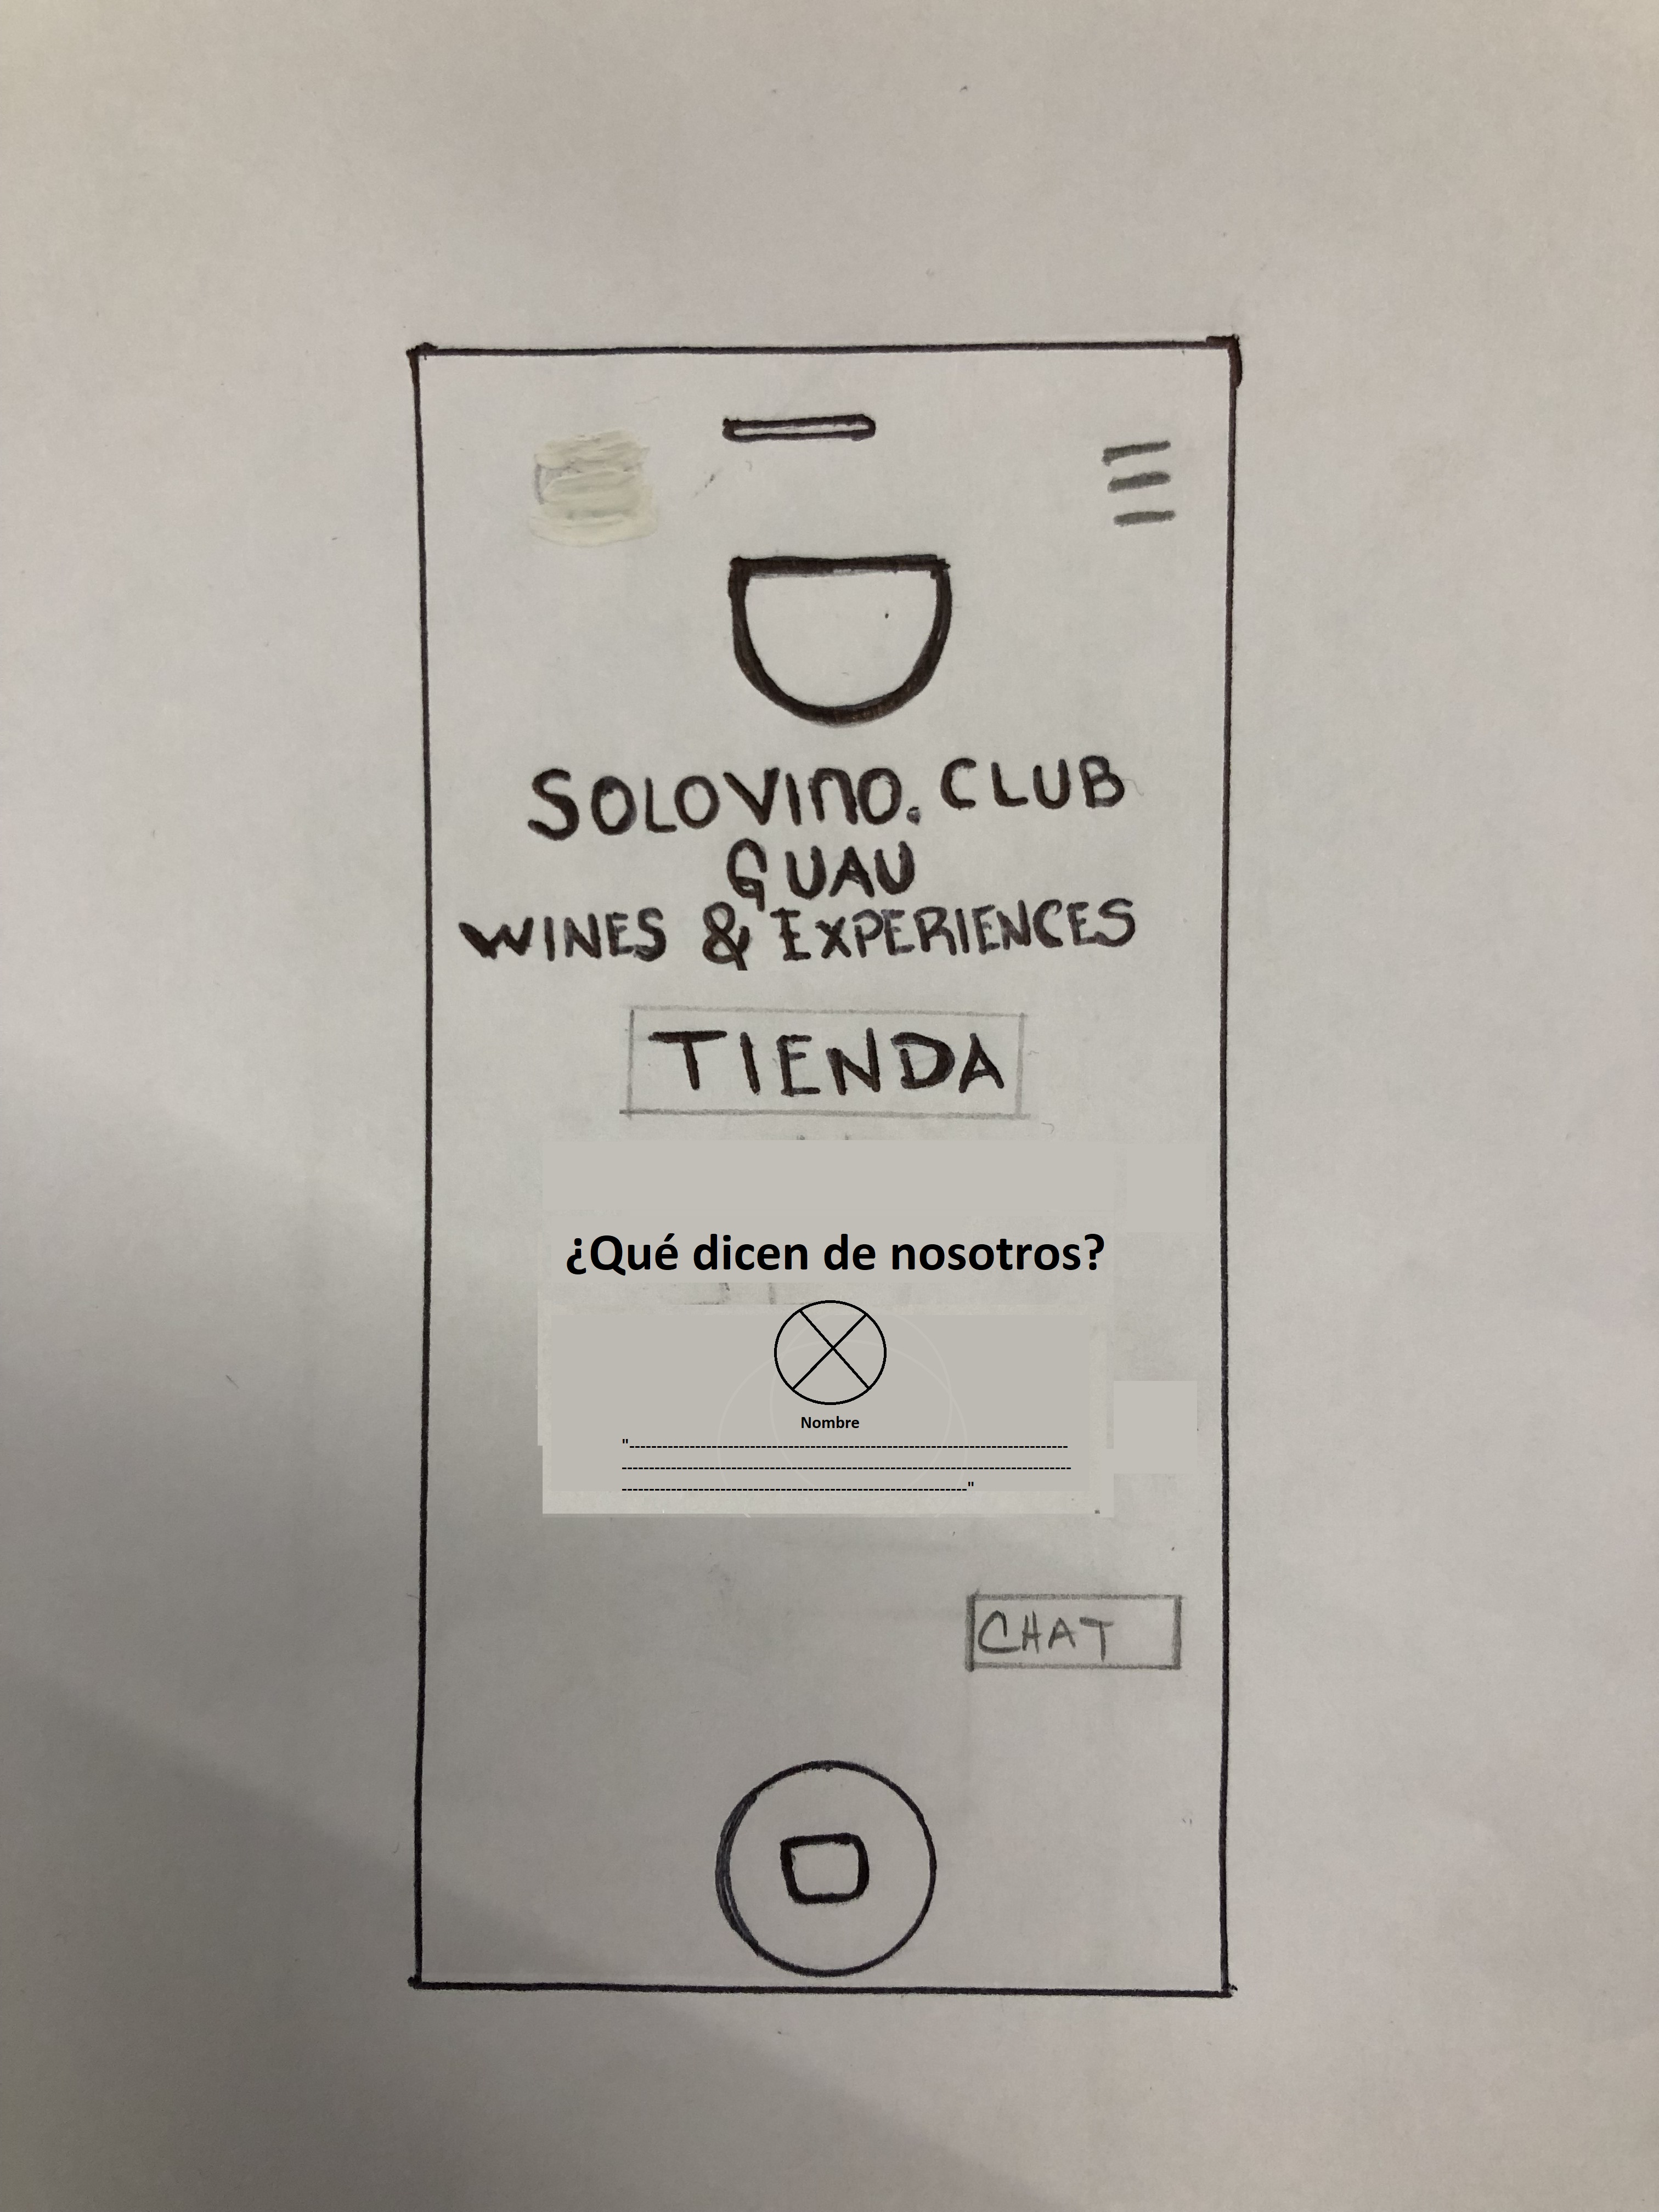 SOLOVINO.CLUB
GUAU
WINES & EXPERIENCES
TIENDA
¿Qué dicen de nosotros?
Nombre
"--------------------------------------------------------------------------------
----------------------------------------------------------------------------------
---------------------------------------------------------------"
CHAT